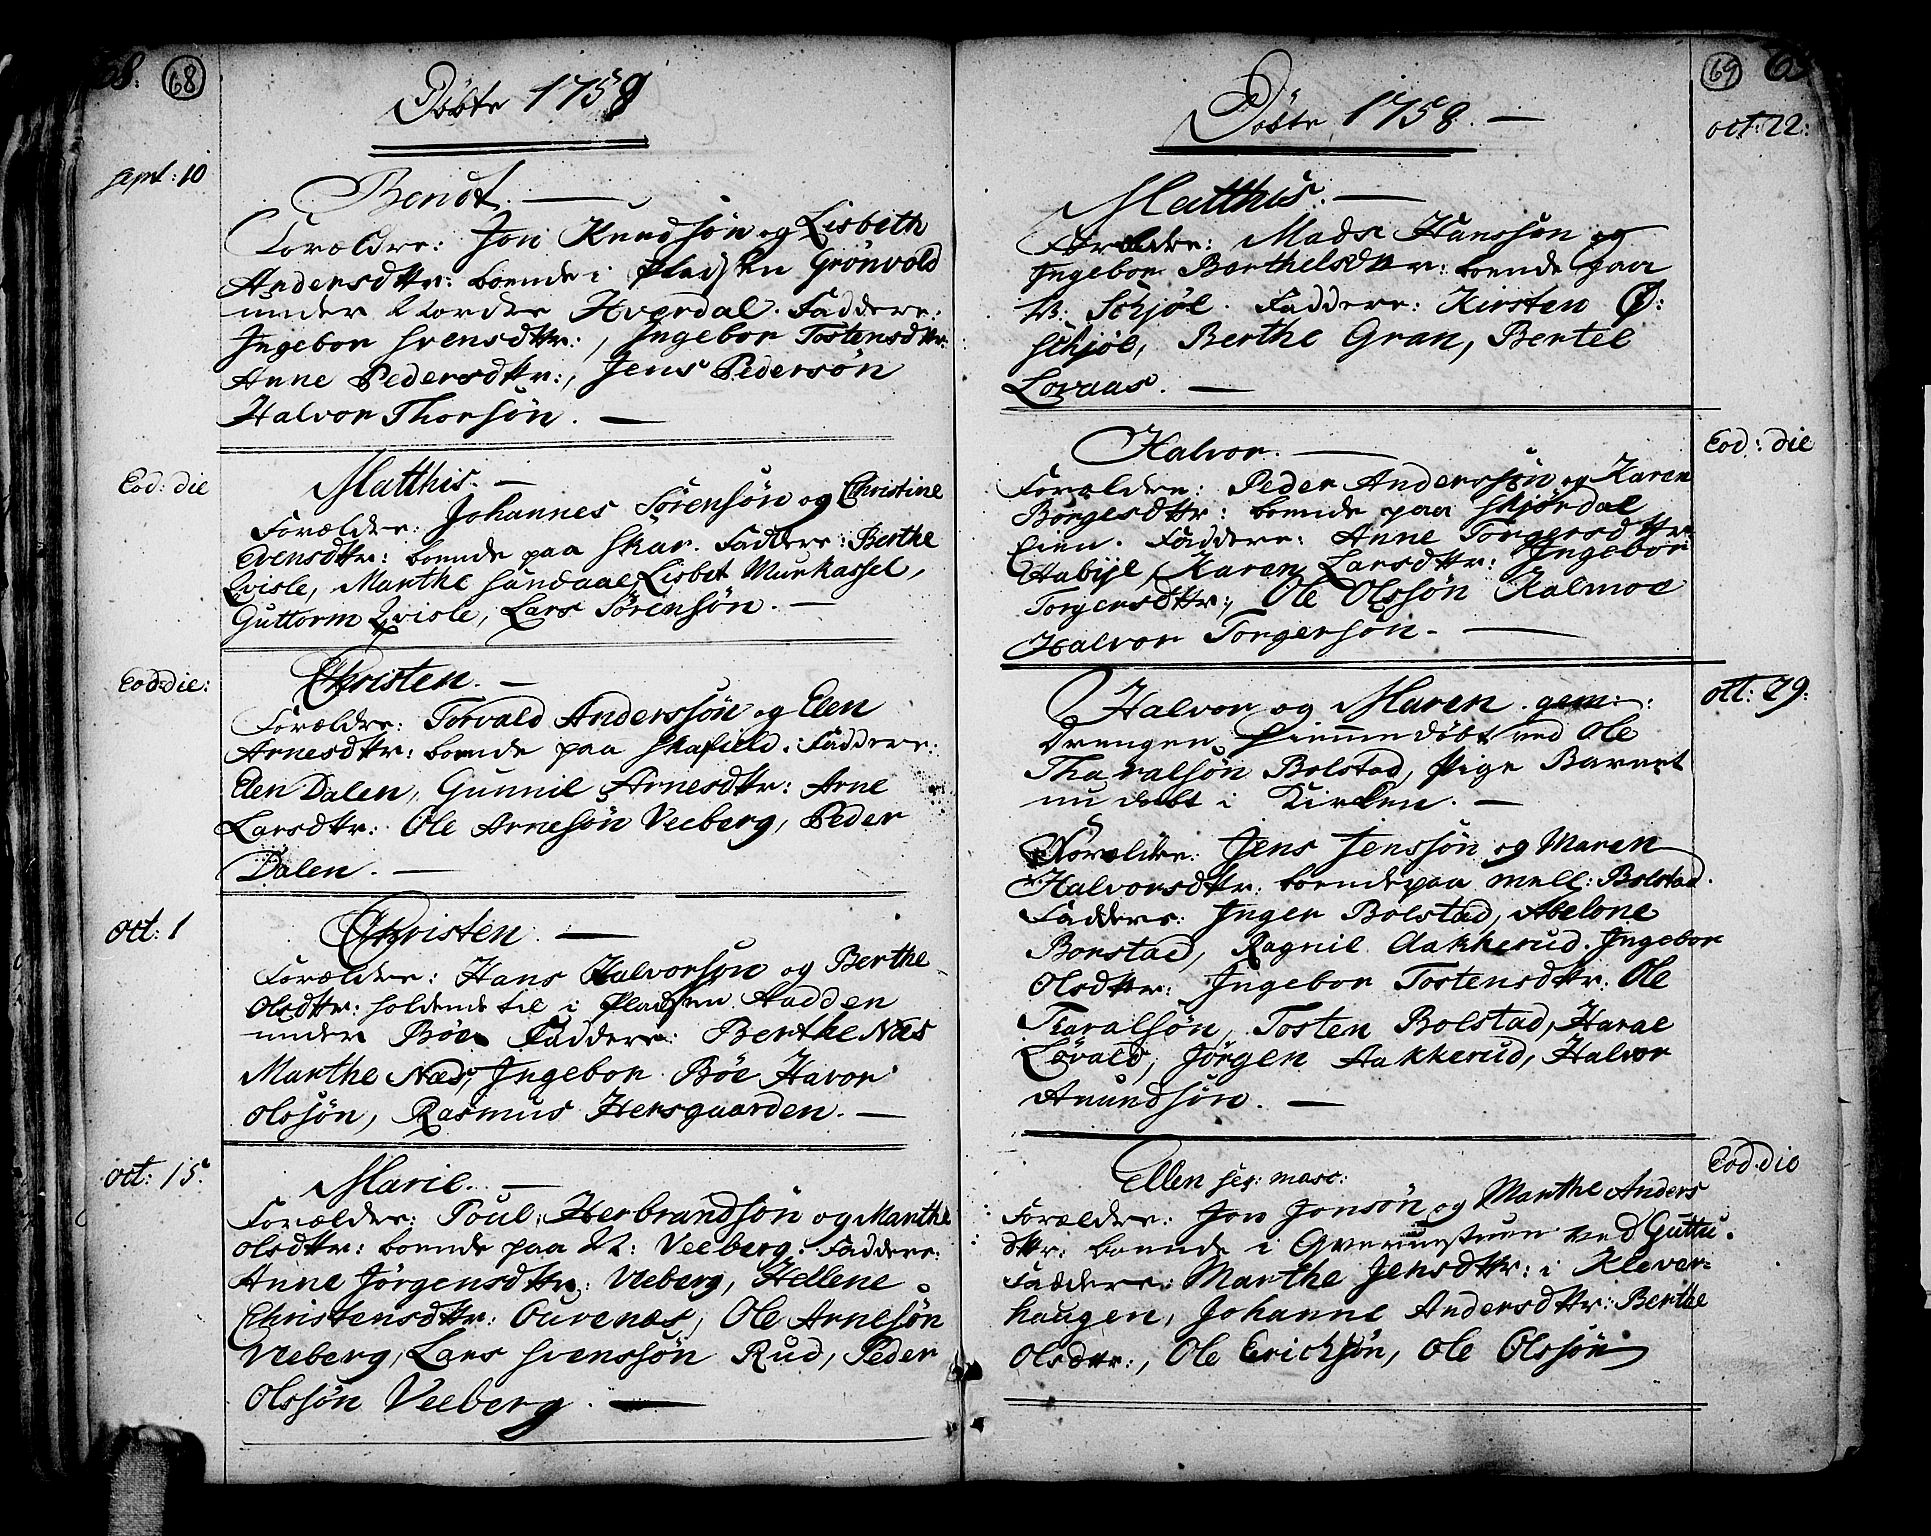 68. 68
Döbte 1758
sept: 10
Bendt.
Forældre: Jon Knudsøn og Lisbeth
Andersdttr: boende i Pladsen Grönvold
under Nordre Hverdal. Faddere:
Ingebor Svensdttr:, Ingebor Tostensdttr:
Anne Pedersdttr:, Jens Pedersøn
Halvor Thorsøn.
Eod: die
Matthis.
Forældre: Johannes Sörensøn og Christine
Evensdttr: boende paa Skar. Faddere: Berthe
Qvisle, Marthe Sandaae, Lisbet Murkassel,
Guttorm Qvisle, Lars Sörensøn.
Eod: die:
Christen.
Forældre: Torvald Anderssøn og Elen
Arnesdttr: boende paa Skafield. Faddere:
Elen Dalen, Gunnil Arnesdttr: Arne
Larsdttr: Ole Arnesøn Veeberg, Peder
Dalen.
Oct: 1
Christen.
Forældre: Hans Halvorsøn og Berthe
Olsdttr: holdende til i Pladsen Hadden
under Böe Faddere: Berthe Næs
Marthe Næs, Ingebor Böe Havor
Olssøn, Rasmus Hersgaarden.
Oct: 15.
Marie.
Forældre: Poul Herbrandsøn og Marthe
Olsdttr: boende paa N: Veeberg. Faddere:
Anne Jörgensdttr: Veeberg, Hellene
Christensdttr: Ourenæs, Ole Arnesøn
Veeberg, Lars Svenssøn Rud, Peder
Olssøn Veeberg.
69 69
Döbte 1758.
oct: 22:
Matthis.
Forældre: Mads Hanssøn og
Ingebor Barthelsdttr: boende paa
N: Schjøl. Faddere: Kirsten Ø:
Schjøl, Berthe Gran, Bertel
Lovaas.
Eod: die
Halvor.
Forældre: Peder Anderssøn og Karen
Börgesdttr: boende paa Skjørdal
Eien. Faddere: Anne Torgersdttr:
Habye, Karen Larsdttr: Ingebor
Torgersdttr:, Ole Olssøn Kalmoe
Halvor Torgersøn.
ott: 29:
Halvor og Maren. gem:
Drengen hiemmedöbt ved Ole
Tharalsøn Bolstad, Pige Barnet
nu døbt i Kirken.
Forældre: Jens Jenssøn og Maren
Halvorsdttr: boende paa mell: Bolstad.
Faddere: Inger Bolstad, Abelone
Borstad, Ragnil Aakkerud. Ingebor
Olsdttr: Ingebor Tostensdttr: Ole
Tharalsøn, Tosten Bolstad, Harae
Løvald, Jörgen Aakkerud, Halvor
Amundsøn.
Eod: die
Ellen masc:
Forældre: Jon Jonsøn og Marthe Anders
dttr: boende i ved Guttu.
Faddere: Marthe Jensdttr: i Klever-
haugen, Johanne Andersdttr: Berthe
Olsdttr:, Ole Ericksøn, Ole Olssøn